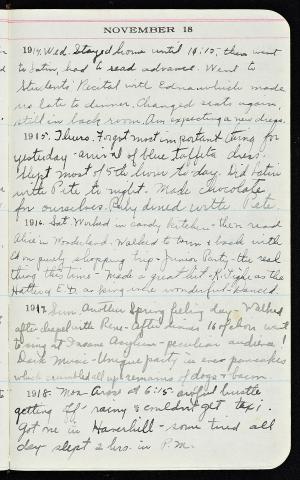 NOVEMBER 18
1914. Wed. Stayed home until 10:10, then went
to Latin, had to read advance. Went to
Students' Recital with Edna which made
us late to dinner. Changed seats again,
still in back room. Am expecting a new dress.
1915. Thurs. Forgot most important thing for
yesterday - arrival of blue taffeta dress.
Slept most of 5th hour to-day. Did Latin
with Pete to night. Made chocolate
for ourselves. Ruby dined with Pete
1916. Sat. Worked in candy kitchen - then read
Alice in Wonderland. Walked to town & back with
on purely shopping trip - Junior Party - the real
thing this time - Made a great hit - K. Fiske as the
Hatter & E.D. as King were wonderful - Danced.
1917. Sun. Another Spring feeling day. Walked
after chapel with Rene - After dinner 16 of choir went
to sing at Insane Asylum - peculiar audience!
Dark Music - Unique party in eve pancakes
which crumbled all up & remains of dogs & bacon
1918. Mon. Arose at 6:15 - awful hustle
getting off - rainy & couldn't get taxi.
Got one in Haverhill - some tired all
day slept 2 hrs. in P.M.